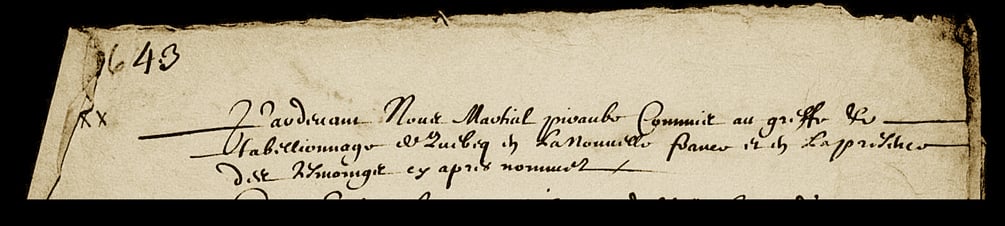 1643
xx
Pardevant Nous Martial piraube Commis au greffe &
tabellionnage de Quebeq en La Nouvelle france et en La presence
des tesmoings cy apres nommes